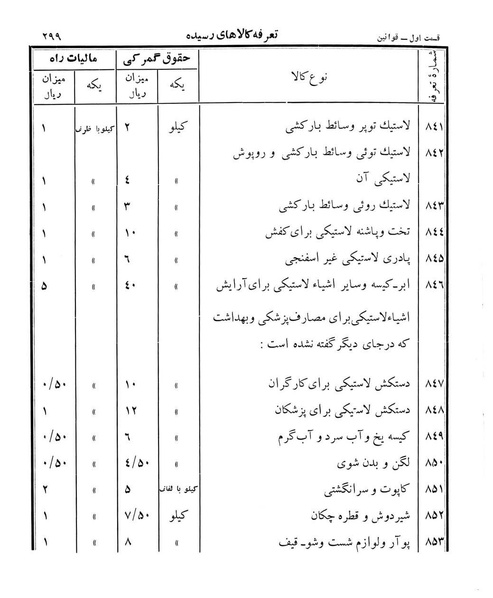 قسمت اول ــ قوانین تعرفه کالاهای رسیده ۲۹۹
شمارهٔ تعرفه نوع کالا حقوق گمرکی مالیات راه
یکه میزان ریال یکه میزان ریال
۸٤۱ لاستیك توپر وسائط بارکشی کیلو ۲ کیلو با ظرف ۱
۸٤۲ لاستیك توئی وسائط بارکشی و روپوش
لاستیکی آن » ٤ » ۱
۸٤۳ لاستیك روئی وسائط بارکشی » ۳ » ۱
۸٤٤ تخت وپاشنه لاستیکی برای کفش » ۱۰ » ۱
۸٤۵ پادری لاستیکی غیر اسفنجی » ٦ » ۱
۸٤٦ ابر ـ کیسه وسایر اشیاء لاستیکی برای آرایش » ٤۰ » ۵
اشیاء لاستیکی برای مصارف پزشکی وبهداشت
که درجای دیگر گفته نشده است :
۸٤۷ دستکش لاستیکی برای کارگران » ۱۰ » ۰/۵۰
۸٤۸ دستکش لاستیکی برای پزشکان » ۱۲ » ۱
۸٤۹ کیسه یخ و آب سرد و آب گرم » ٦ » ۰/۵۰
۸۵۰ لگن و بدن شوی » ٤/۵۰ » ۰/۵۰
۸۵۱ کاپوت و سرانگشتی کیلو با لفاف ۵ » ۲
۸۵۲ شیردوش و قطره چکان کیلو ۷/۵۰ » ۱
۸۵۳ پوآر ولوازم شست وشو ـ قیف » ۸ » ۱